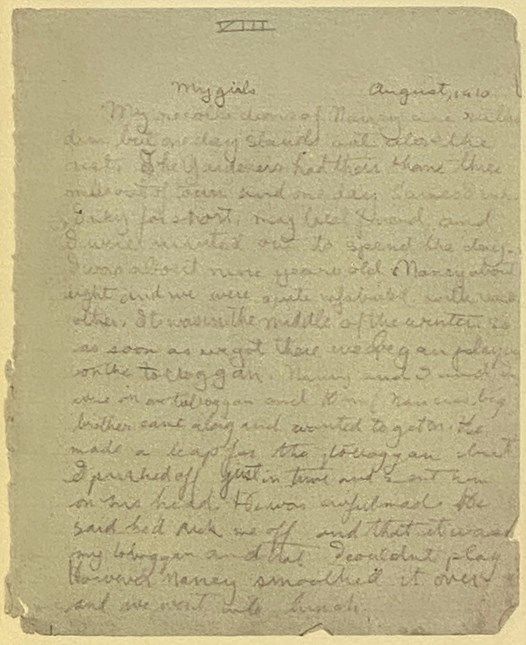 VIII
My girls August, 1910
My recollections of Nancy are rather
dim, but one day stands out above the
rest. The Gardeners had their home three
miles out of town and one day
Inky for short, my best friend and
I were invited out to spend the day.
I was about nine years old Nancy about
eight and we were quite infatuated with each
other. It was in the middle of the winter so
as soon as we got there we began playing
on the toboggan. Nancy and I and
were on one toboggan and Nancies big
brother came along and wanted to get on. He
made a leap for the toboggan but
I pushed off just in time and sent him
on his head. He was awful mad. He
said hed kick me off and that it was
my toboggan and that I couldnt play
However Nancy smoothed it over
and we went into lunch.